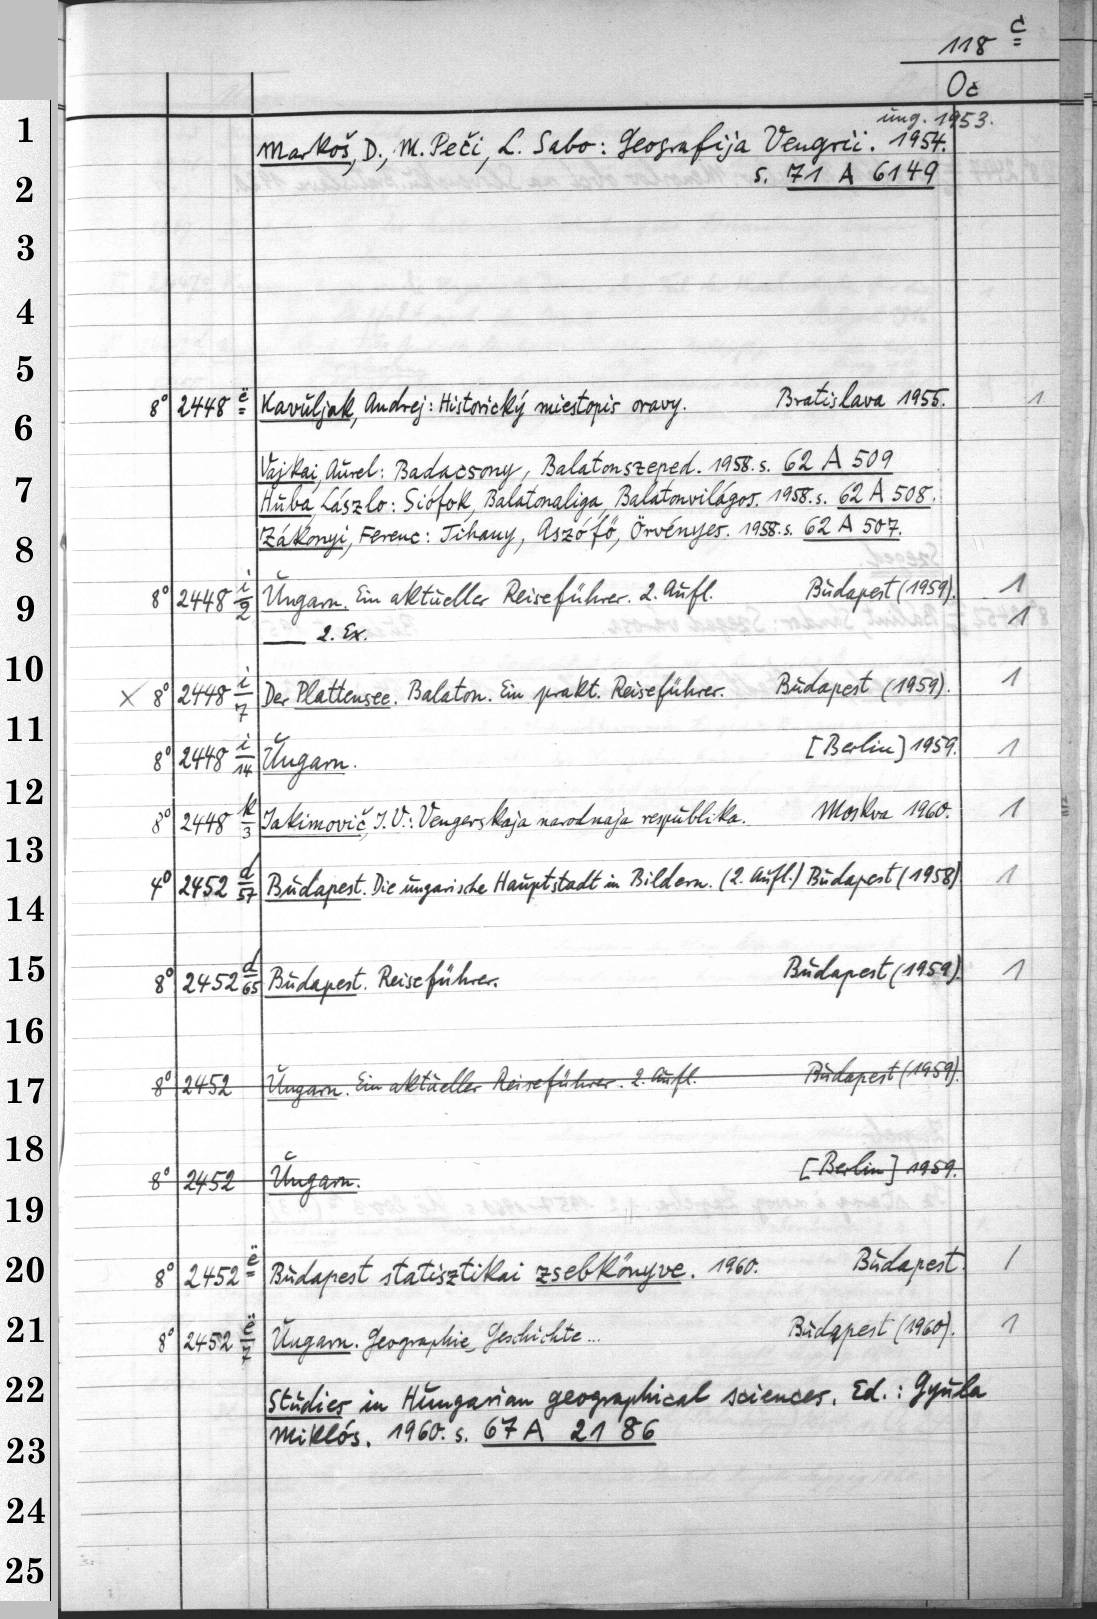 118 č
Oč
ung. 1953.
1 Markoš, D., M. Peči, L. Sabo: Geografija Vengrii. 1954.
2 s. 71 A 6149
3
4
5
8° 2448 ë Kavuljak, Andrej: Historický miestopis oravy. Bratislava 1955. 1
6
Vajkai, Aurel: Badacsony, Balatonszeped. 1958. s. 62 A 509
7 Huba László: Siófok, Balatonaliga, Balatonvilágos. 1958. s. 62 A 508.
8 Zákonyi, Ferenc: Tihany, Aszófő, Örvényes. 1958. s. 62 A 507.
9 8° 2448 i/2 Ungarn. Ein aktueller Reiseführer. 2. Aufl. Budapest (1959). 1
— 2. Ex. 1
10 X 8° 2448 i/7 Der Plattensee. Balaton. Ein prakt. Reiseführer. Budapest (1959). 1
11 8° 2448 i/14 Ungarn. [Berlin] 1959. 1
12 8° 2448 k/3 Jakimovič, I. V.: Vengerskaja narodnaja respublika. Moskva 1960. 1
13
4° 2452 d/57 Budapest. Die ungarische Hauptstadt in Bildern. (2. Aufl.) Budapest (1958) 1
14
15 8° 2452 d/65 Budapest. Reiseführer. Budapest (1959). 1
16
17 8° 2452 Ungarn. Ein aktueller Reiseführer. 2. Aufl. Budapest (1959).
18
8° 2452 Ungarn. [Berlin] 1959.
19
20 8° 2452 ë Budapest statisztikai zsebkönyve. 1960. Budapest. 1
21 8° 2452 ë/7 Ungarn. Geographie, Geschichte... Budapest (1960). 1
22 Studies in Hungarian geographical sciences. Ed.: Gyula
23 Miklós. 1960. s. 67 A 2186
24
25